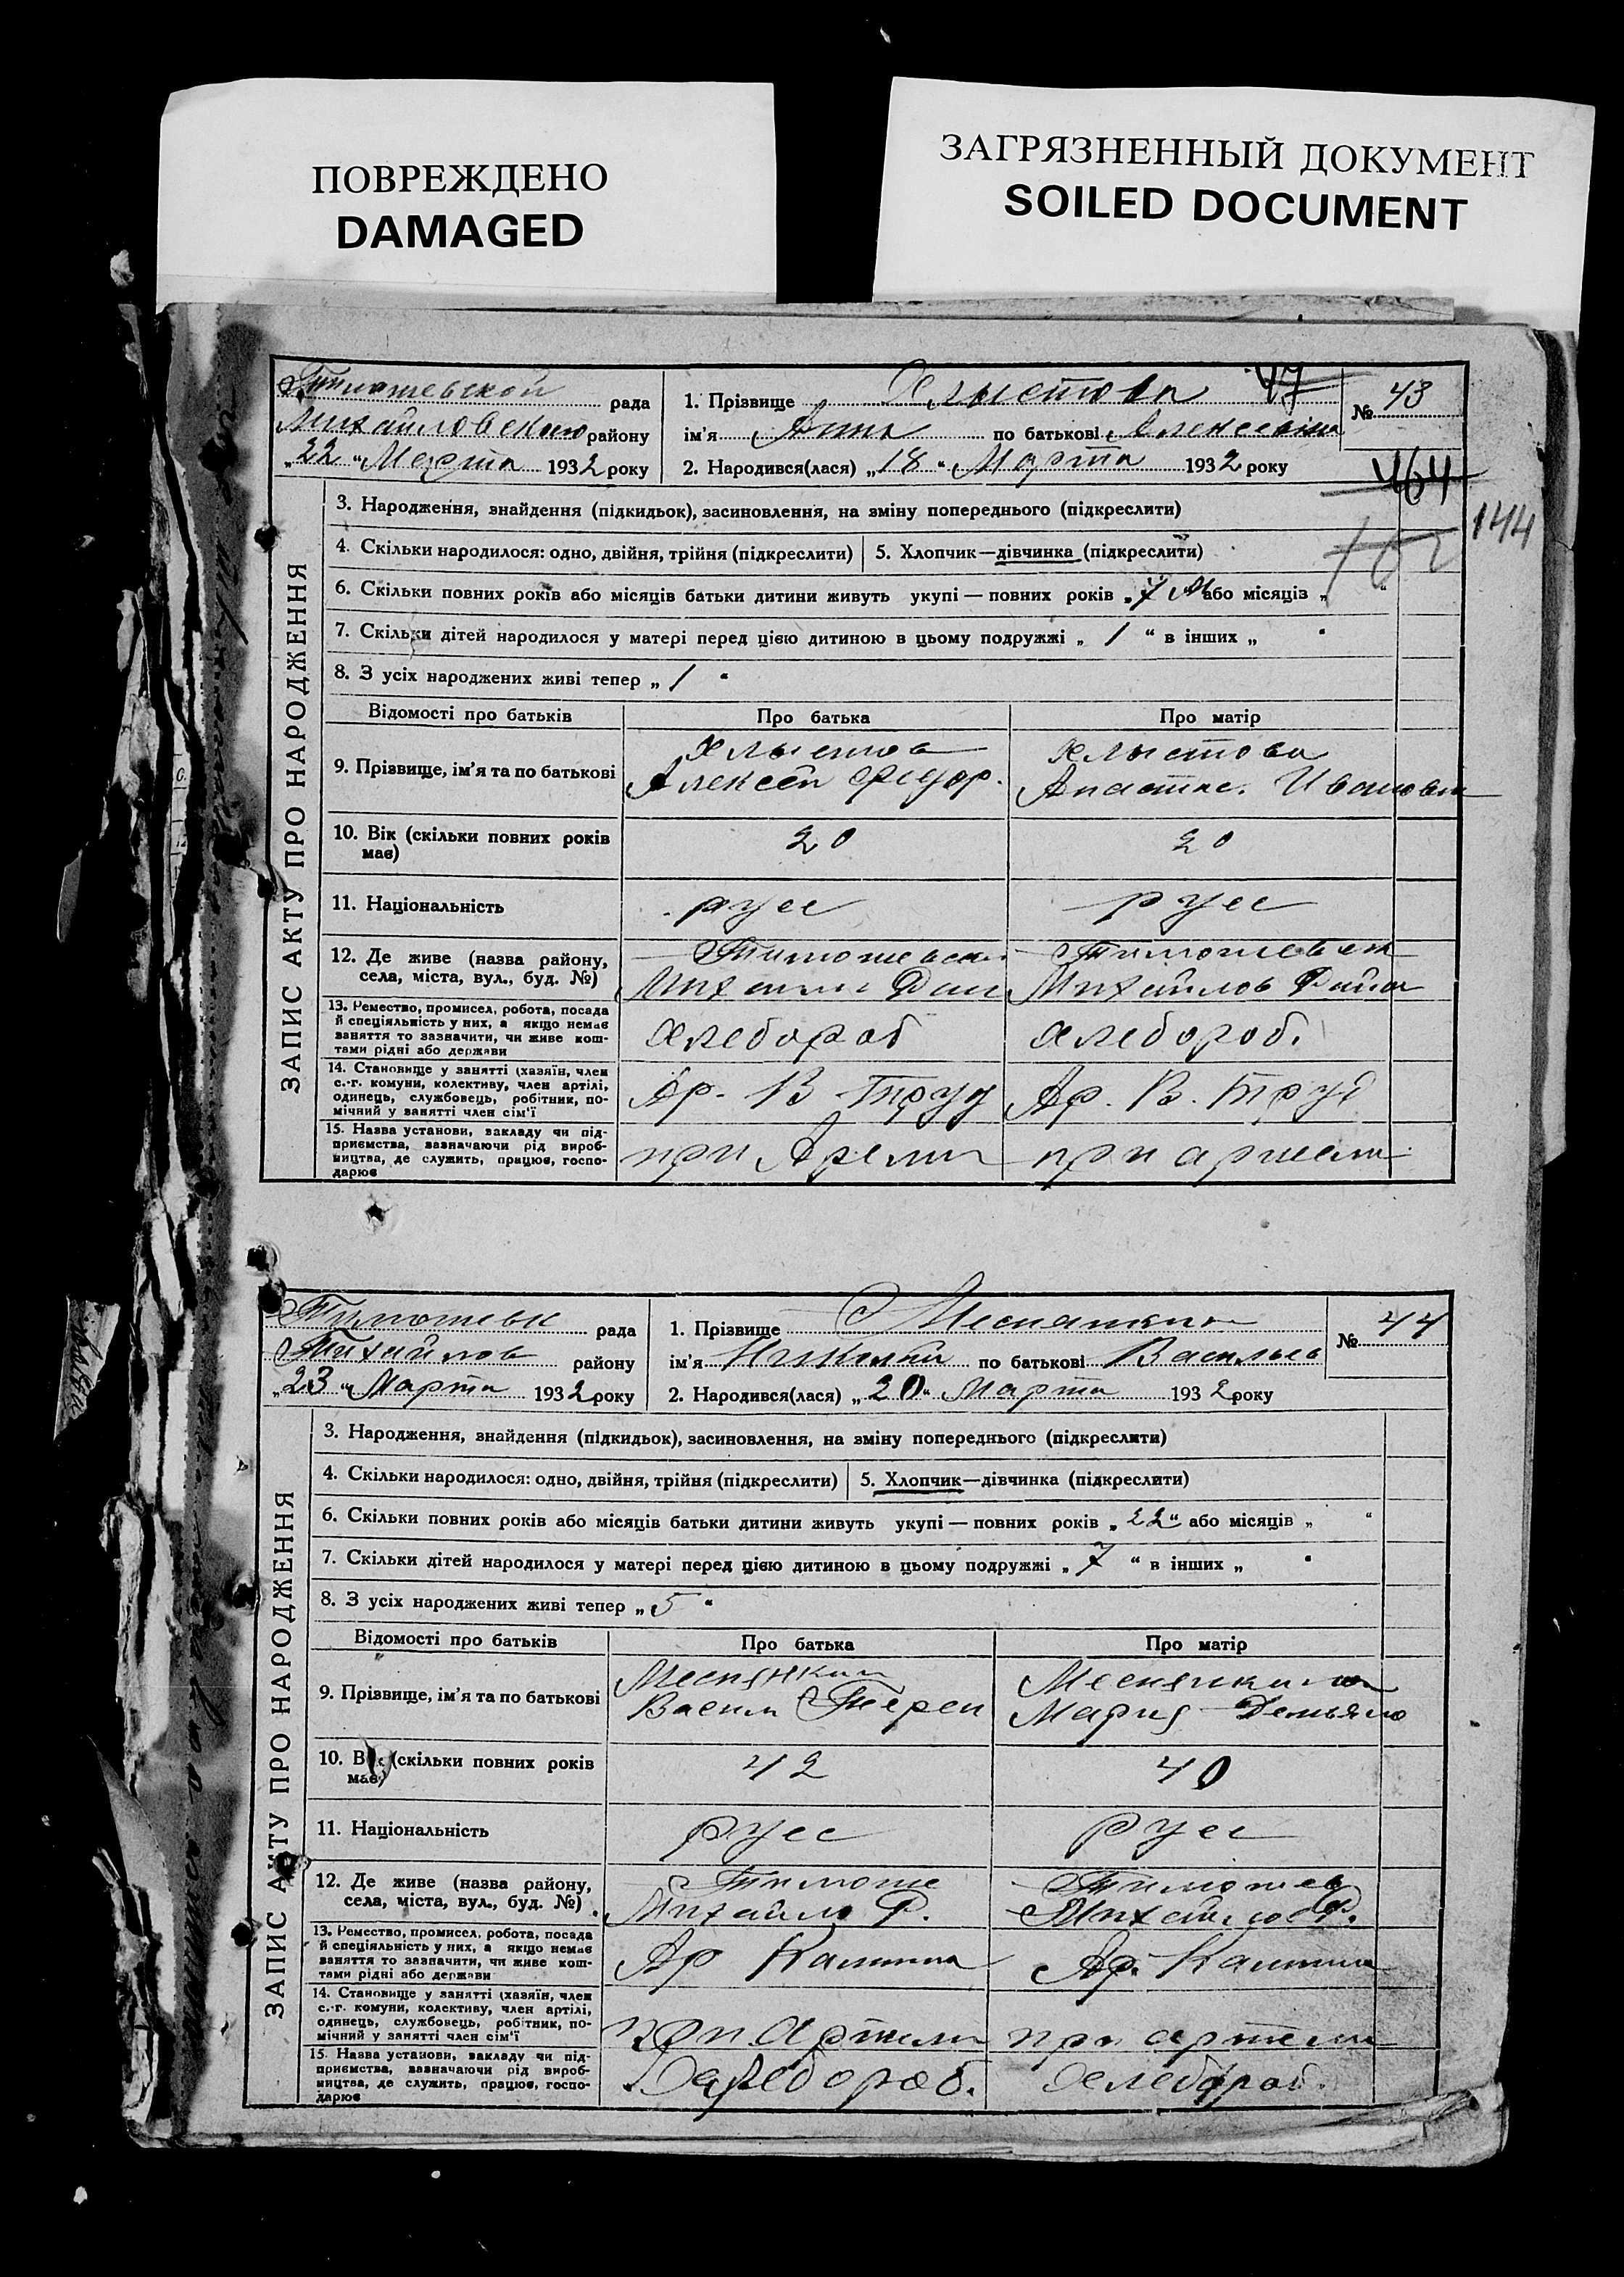 ПОВРЕЖДЕНО
DAMAGED
ЗАГРЯЗНЕННЫЙ ДОКУМЕНТ
SOILED DOCUMENT
ЗАПИС АКТУ ПРО НАРОДЖЕННЯ
Тимошевской рада
Михайловского району
„22“ Марта 1932 року
1. Прізвище Хлыстова
ім'я Анна по батькові Алексеевна
2. Народився(лася) „18“ Марта 1932 року
№ 43
464
144
3. Народження, знайдення (підкидьок), засиновлення, на зміну попереднього (підкреслити)
4. Скільки народилося: одно, двійня, трійня (підкреслити) 5. Хлопчик—дівчинка (підкреслити)
6. Скільки повних років або місяців батьки дитини живуть укупі — повних років „ або місяців „ “
7. Скільки дітей народилося у матері перед цією дитиною в цьому подружжі „ 1 “ в інших „ “
8. З усіх народжених живі тепер „ 1 “
Відомості про батьків Про батька Про матір
9. Прізвище, ім'я та по батькові
Хлыстов
Алексей Федор.
Хлыстова
Анастас. Иванов
10. Вік (скільки повних років має) 20 20
11. Національність русс русс
12. Де живе (назва району, села, міста, вул., буд. №)
Тимошевск
Михайл Рай
Тимошевск
Михайлов Район
13. Ремество, промисел, робота, посада
й спеціяльність у них, а якщо немає
заняття то зазначити, чи живе кош-
тами рідні або держави
хлебороб хлебороб.
14. Становище у занятті (хазяїн, член
с.-г. комуни, колективу, член артілі,
одинець, службовець, робітник, по-
мічний у занятті член сім'ї
Ар. В. Труд Ар. В. Труд
15. Назва установи, закладу чи під-
приємства, зазначаючи рід вироб-
ництва, де служить, працює, госпо-
дарює
при Артели при артели
ЗАПИС АКТУ ПРО НАРОДЖЕННЯ
Тимошевск рада
Михайлов району
„23“ Марта 1932 року
1. Прізвище
ім'я Николай по батькові Васильев
2. Народився(лася) „20“ Марта 1932 року
№ 44
3. Народження, знайдення (підкидьок), засиновлення, на зміну попереднього (підкреслити)
4. Скільки народилося: одно, двійня, трійня (підкреслити) 5. Хлопчик—дівчинка (підкреслити)
6. Скільки повних років або місяців батьки дитини живуть укупі — повних років „ 22 “ або місяців „ “
7. Скільки дітей народилося у матері перед цією дитиною в цьому подружжі „ 7 “ в інших „ “
8. З усіх народжених живі тепер „ 5 “
Відомості про батьків Про батька Про матір
9. Прізвище, ім'я та по батькові
Меснянкин
Васил Терен
Меснянкина
Мария Демьяно
10. Вік (скільки повних років має) 42 40
11. Національність русс русс
12. Де живе (назва району, села, міста, вул., буд. №)
Тимоше
Михайло Р.
Тимошев
Михайлов Р.
13. Ремество, промисел, робота, посада
й спеціяльність у них, а якщо немає
заняття то зазначити, чи живе кош-
тами рідні або держави
Ар Калинина Ар. Калинина
14. Становище у занятті (хазяїн, член
с.-г. комуни, колективу, член артілі,
одинець, службовець, робітник, по-
мічний у занятті член сім'ї
при артели при артели
15. Назва установи, закладу чи під-
приємства, зазначаючи рід вироб-
ництва, де служить, працює, госпо-
дарює
Хлебороб. Хлебороб.